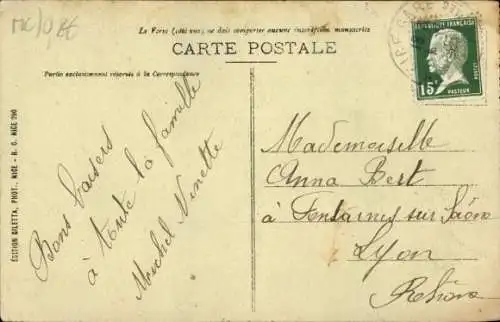 MC/9 BE
Le Verso (côté vue) ne doit comporter aucune inscription manuscrite
CARTE POSTALE
Partie exclusivement réservée à la Correspondance
GARE
RÉPUBLIQUE FRANÇAISE
15c
PASTEUR
POSTES
ÉDITION GILETTA, PHOT., NICE - R. C. NICE 290
Bons baisers
à toute la famille
Michel Ninette
Mademoiselle
Anna Bert
à Fontaines sur Saône
Lyon
Rhône